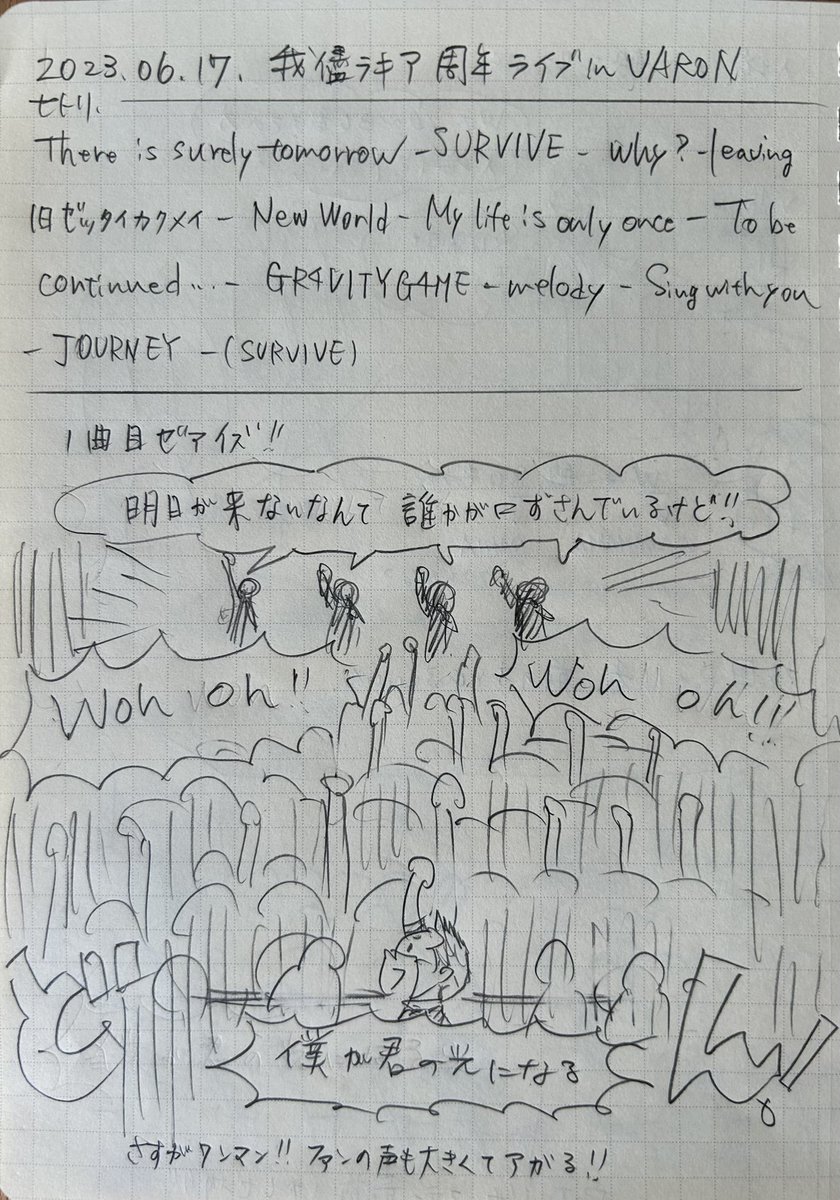 2023.06.17. 我儘ラキア 周年 ライブ in VARON
セトリ.
There is surely tomorrow - SURVIVE - why? - leaving
旧ゼッタイカクメイ - New World - My life is only once - To be
continued... - GR4VITYG4ME - melody - Sing with you
- JOURNEY - (SURVIVE)
1曲目ゼアイズ!!
明日が来ないなんて 誰かが口ずさんでいるけど!!
Woh oh!!
Woh oh!!!
どん!
僕が君の光になる
さすがワンマン!! ファンの声も大きくてアガる!!